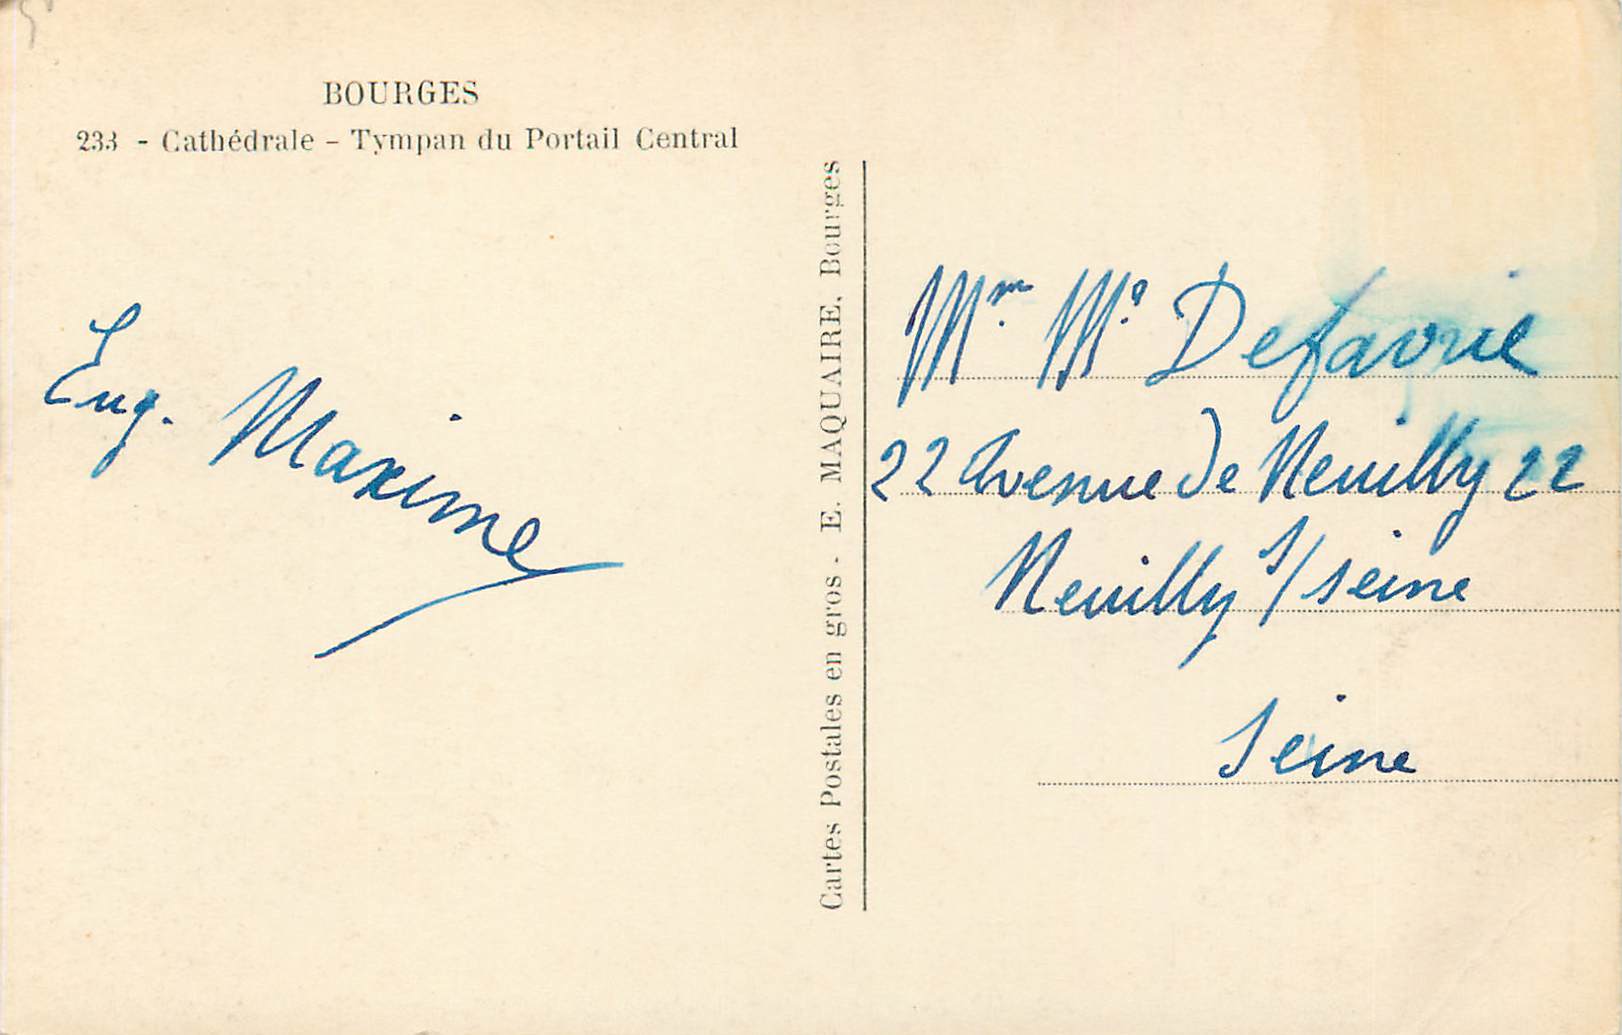 BOURGES
233 - Cathédrale - Tympan du Portail Central
Eug. Maxime
Cartes Postales en gros - E. MAQUAIRE, Bourges
Mr. Me
22 Avenue de Neuilly 22
Neuilly s/ seine
Seine